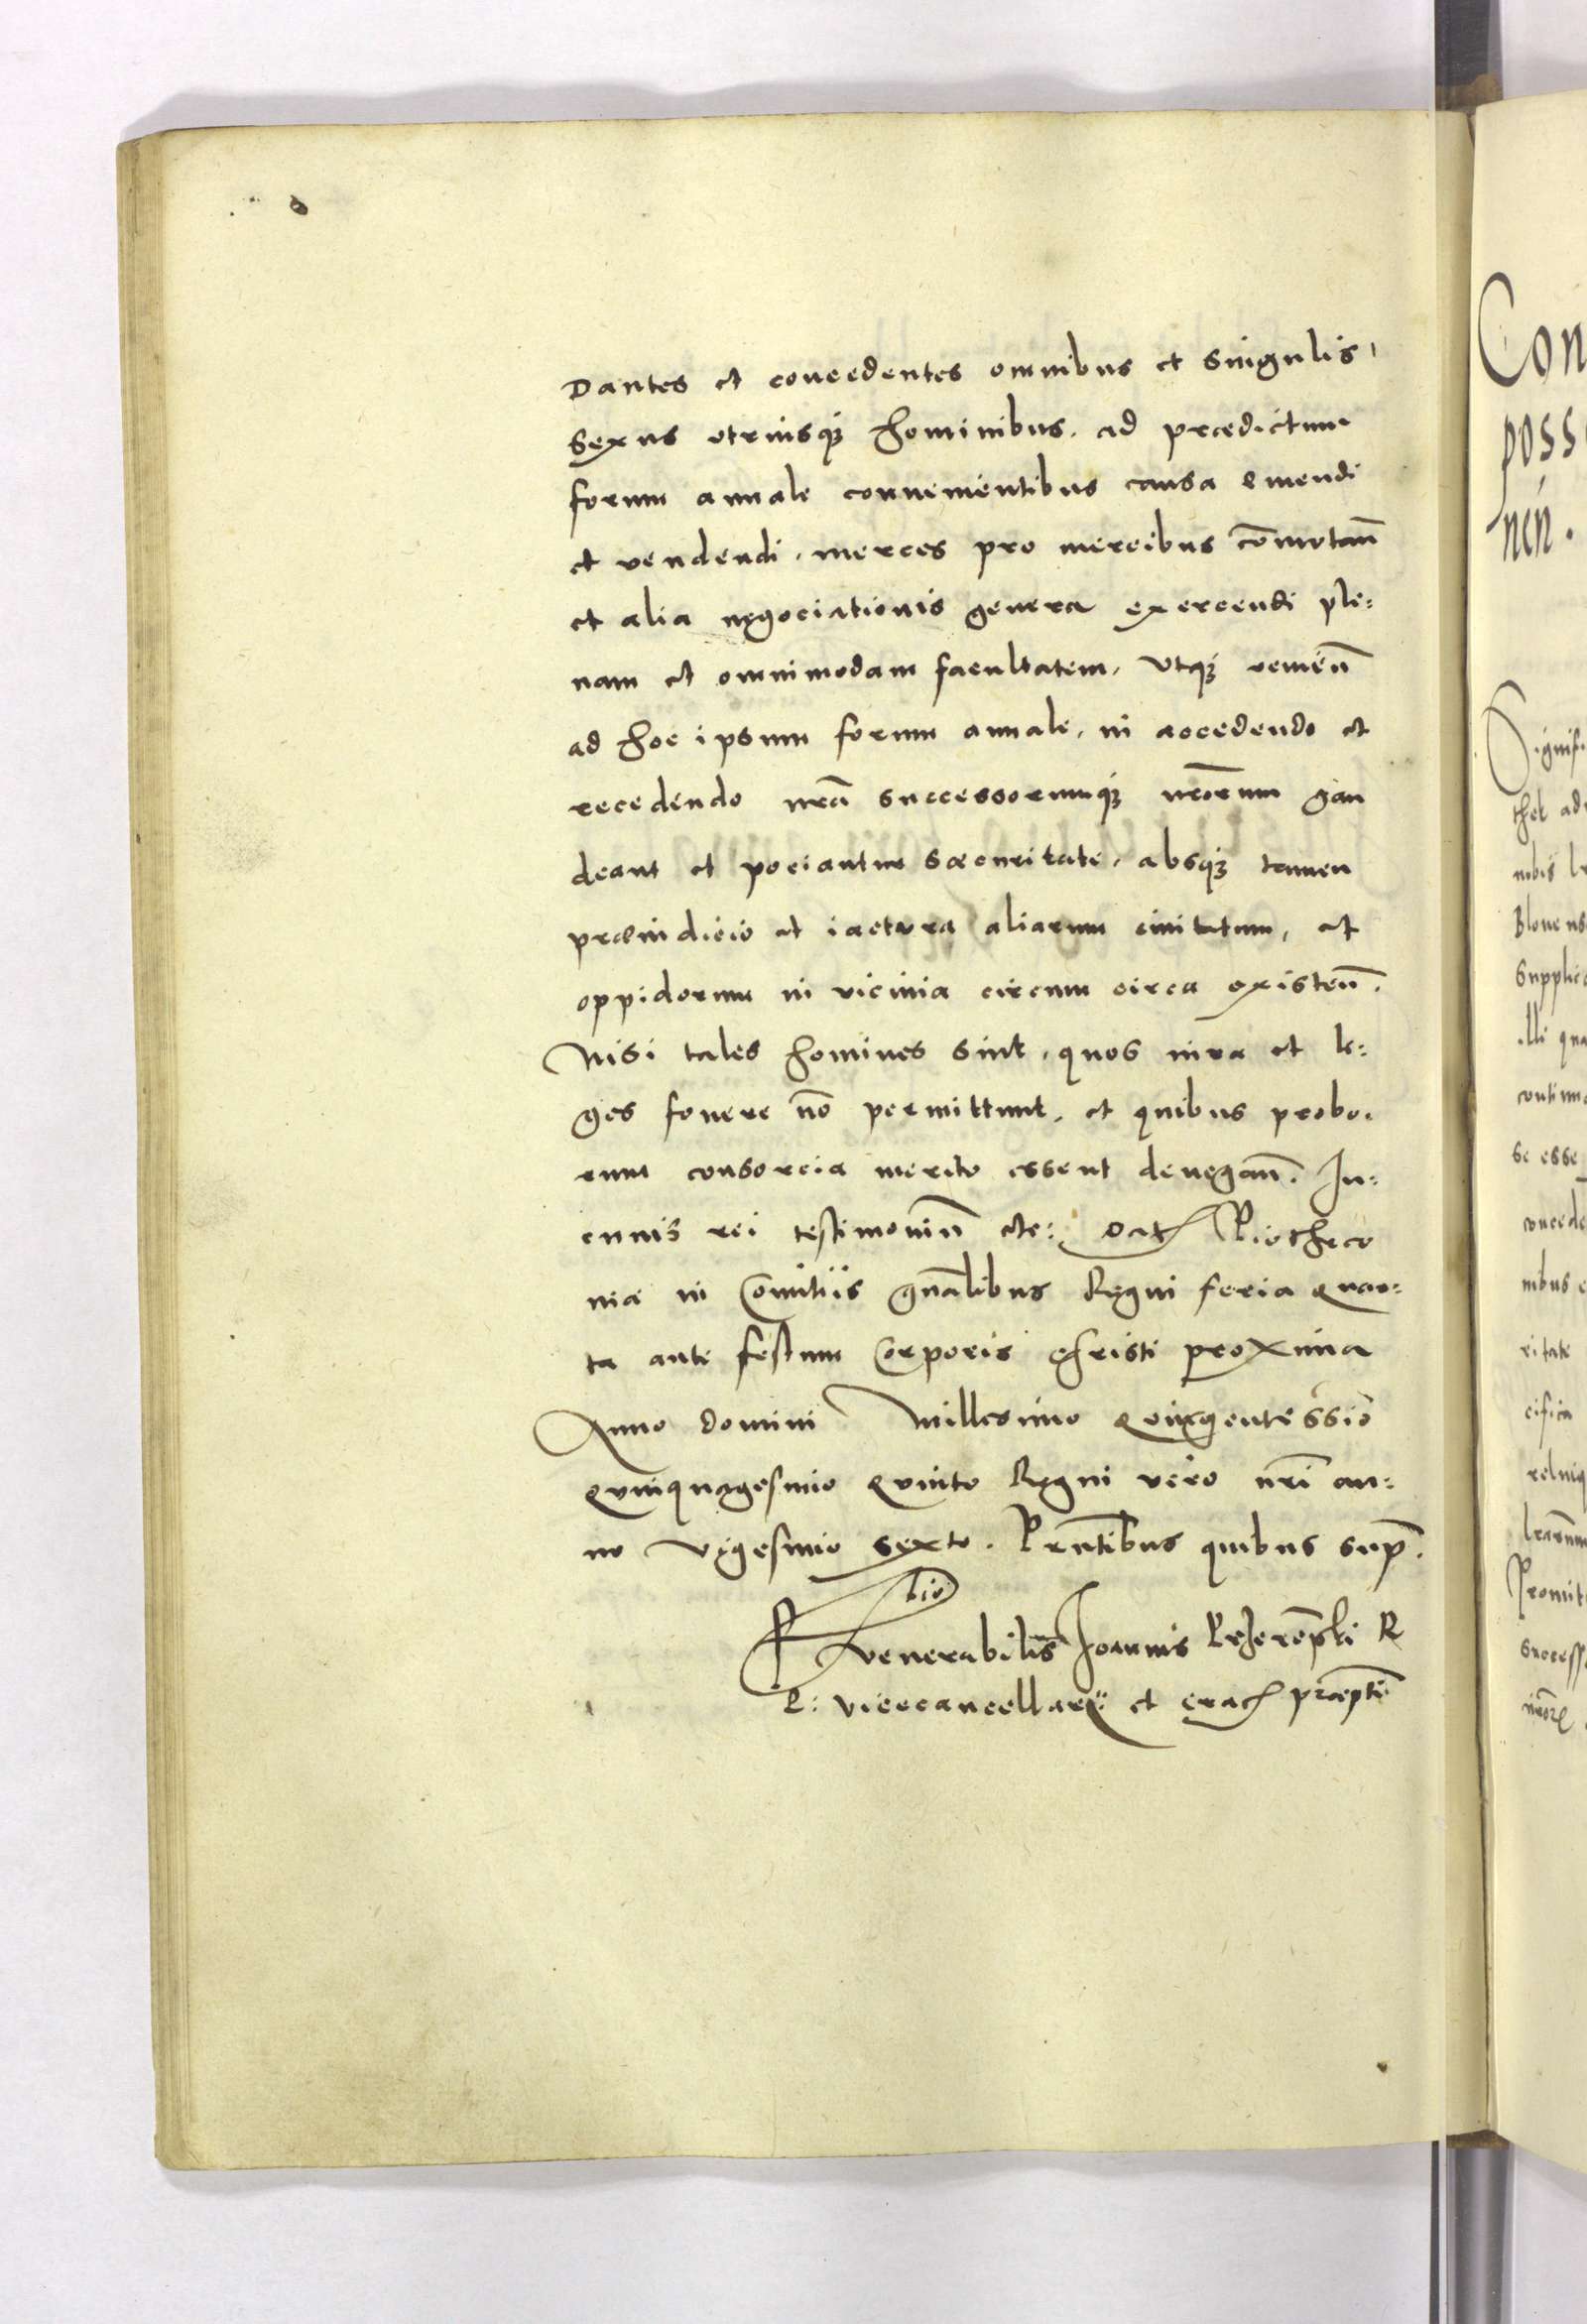 Dantes et concedentes omnibus et singulis,
Sexus utriusq; hominibus, ad prædictum
forum annale convenientibus causa emendi
et vendendi, merces pro mercibus cōmutan̄
et alia negociationis genera exercendi ple:
nam et omnimodam facultatem, Utq; venien̄
ad hoc ipsum forum annale, in accedendo et
recedendo nrā successorumq; nrōrum gau
deant et pociantur sæcuritate, absq; tamen
præiudicio et iactura aliarum civitatum, et
oppidorum in vicinia circum circa existen̄.
Nisi tales homines sint, quos iura et le:
ges fovere nō permittunt, et quibus probo.
rum consorcia merito essent denegan̄. In:
cuius rei testimoniū etc: Dat Piotrkco
nia in Comitiis gn̄alibus Regni feria quar:
ta ante festum Corporis christi proxima
Anno domini Millesimo quingentessiō
quinquagesimo quinto Regni vero nr̄i an:
no vigesimo sexto. Prn̄tibus quibus sup̄.
Rlio
venerabilis Joannis Przerēpski R
P: vicecancellarii et crac præpti
Con
poss
nen.
Signifi
thet ad
nobis l
Blonens
Supplic
illi qua
continu
se esse
concede
nibus e
ritate
cifica
relniq
lrarum
Promit
Success
nrōr